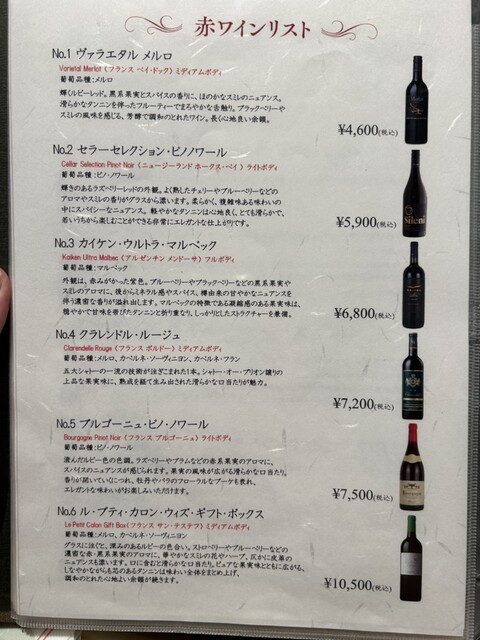 赤ワインリスト
No.1 ヴァラエタル メルロ
Varietal Merlot 〈フランス ペイ・ドック〉 ミディアムボディ
葡萄品種:メルロ
輝くルビーレッド。黒系果実とスパイスの香りに、ほのかなスミレのニュアンス。
滑らかなタンニンを伴ったフルーティーでまろやかな舌触り。ブラックベリーや
スミレの風味を感じる、芳醇で調和のとれたワイン。長く心地良い余韻。
¥4,600(税込)
No.2 セラーセレクション・ピノノワール
Cellar Selection Pinot Noir 〈ニュージーランド ホークス・ベイ〉 ライトボディ
葡萄品種:ピノ・ノワール
輝きのあるラズベリーレッドの外観。よく熟したチェリーやブルーベリーなどの
アロマやスミレの香りがグラスから漂います。柔らかく、複雑味ある味わいの
中にスパイシーなニュアンス。軽やかなタンニンは心地良く、とても滑らかで、
若いうちから楽しむことができる非常にエレガントな仕上がりです。
¥5,900(税込)
Sileni
No.3 カイケン・ウルトラ・マルベック
Kaiken Ultra Malbec 〈アルゼンチン メンドーサ〉 フルボディ
葡萄品種:マルベック
外観は、赤みがかった紫色。ブルーベリーやブラックベリーなどの黒系果実や
スミレのアロマに、後からミネラル感やスパイス、樽由来の甘やかなニュアンスを
伴う濃密な香りが溢れ出します。マルベックの特徴である凝縮感のある果実味は、
穏やかで甘味を帯びたタンニンと折り重なり、しっかりとしたストラクチャーを兼備。
¥6,800(税込)
No.4 クラレンドル・ルージュ
Clarendelle Rouge 〈フランス ボルドー〉 ミディアムボディ
葡萄品種:メルロ、カベルネ・ソーヴィニヨン、カベルネ・フラン
五大シャトーの一流の技術が注ぎこまれた1本。シャトー・オー・ブリオン譲りの
上品な果実味に、熟成を経て生み出された滑らかな口当たりが魅力。
¥7,200(税込)
No.5 ブルゴーニュ・ピノ・ノワール
Bourgogne Pinot Noir 〈フランス ブルゴーニュ〉 ライトボディ
葡萄品種:ピノ・ノワール
澄んだルビー色の色調。ラズベリーやプラムなどの赤系果実のアロマに、
スパイスのニュアンスが感じられます。果実の風味が広がる滑らかな口当たり。
香りが開いていくにつれ、牡丹やバラのフローラルなブーケも表れ、
エレガントな味わいがお楽しみいただけます。
¥7,500(税込)
No.6 ル・プティ・カロン・ウィズ・ギフト・ボックス
Le Petit Calon Gift Box 〈フランス サン・テステフ〉 ミディアムボディ
葡萄品種:メルロ、カベルネ・ソーヴィニヨン、カベルネ・フラン
グラスに注ぐと、深みのあるルビーの色合い。ストロベリーやブルーベリーなどの
濃密な赤・黒系果実のアロマに、華やかなスミレの花やハーブ、仄かに皮革の
ニュアンスも漂います。口に含むと滑らかな口当たり。ピュアな果実味とともに広がる、
しなやかながらも芯のあるタンニンは味わい全体をまとめ上げ、
調和のとれた心地よい余韻が続きます。
¥10,500(税込)